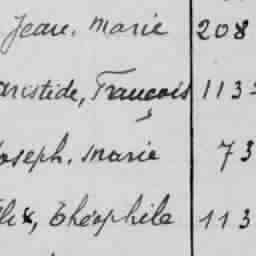 Jean, Marie 208
Aristide, François 113
Joseph, Marie 73
Théophile 113